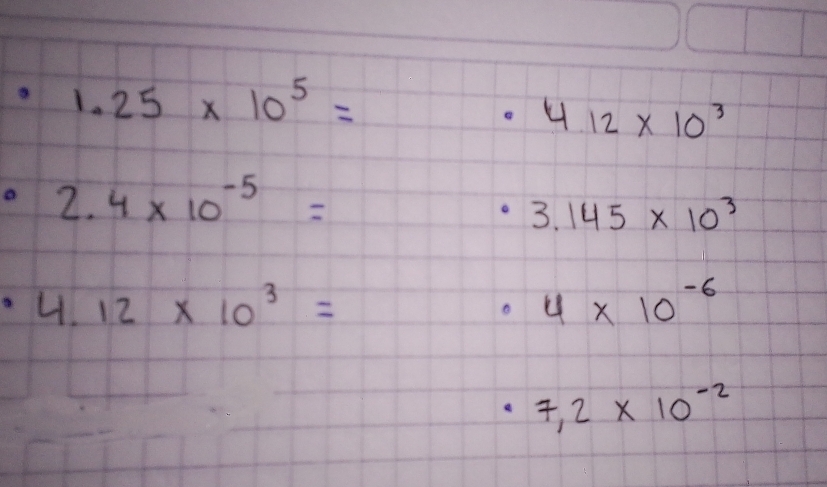 • 1.25 x 10⁵ =
• 2.4 x 10⁻⁵ =
• 4.12 x 10³ =
• 4 12 x 10³
• 3.145 x 10³
• 4 x 10⁻⁶
• 7,2 x 10⁻²